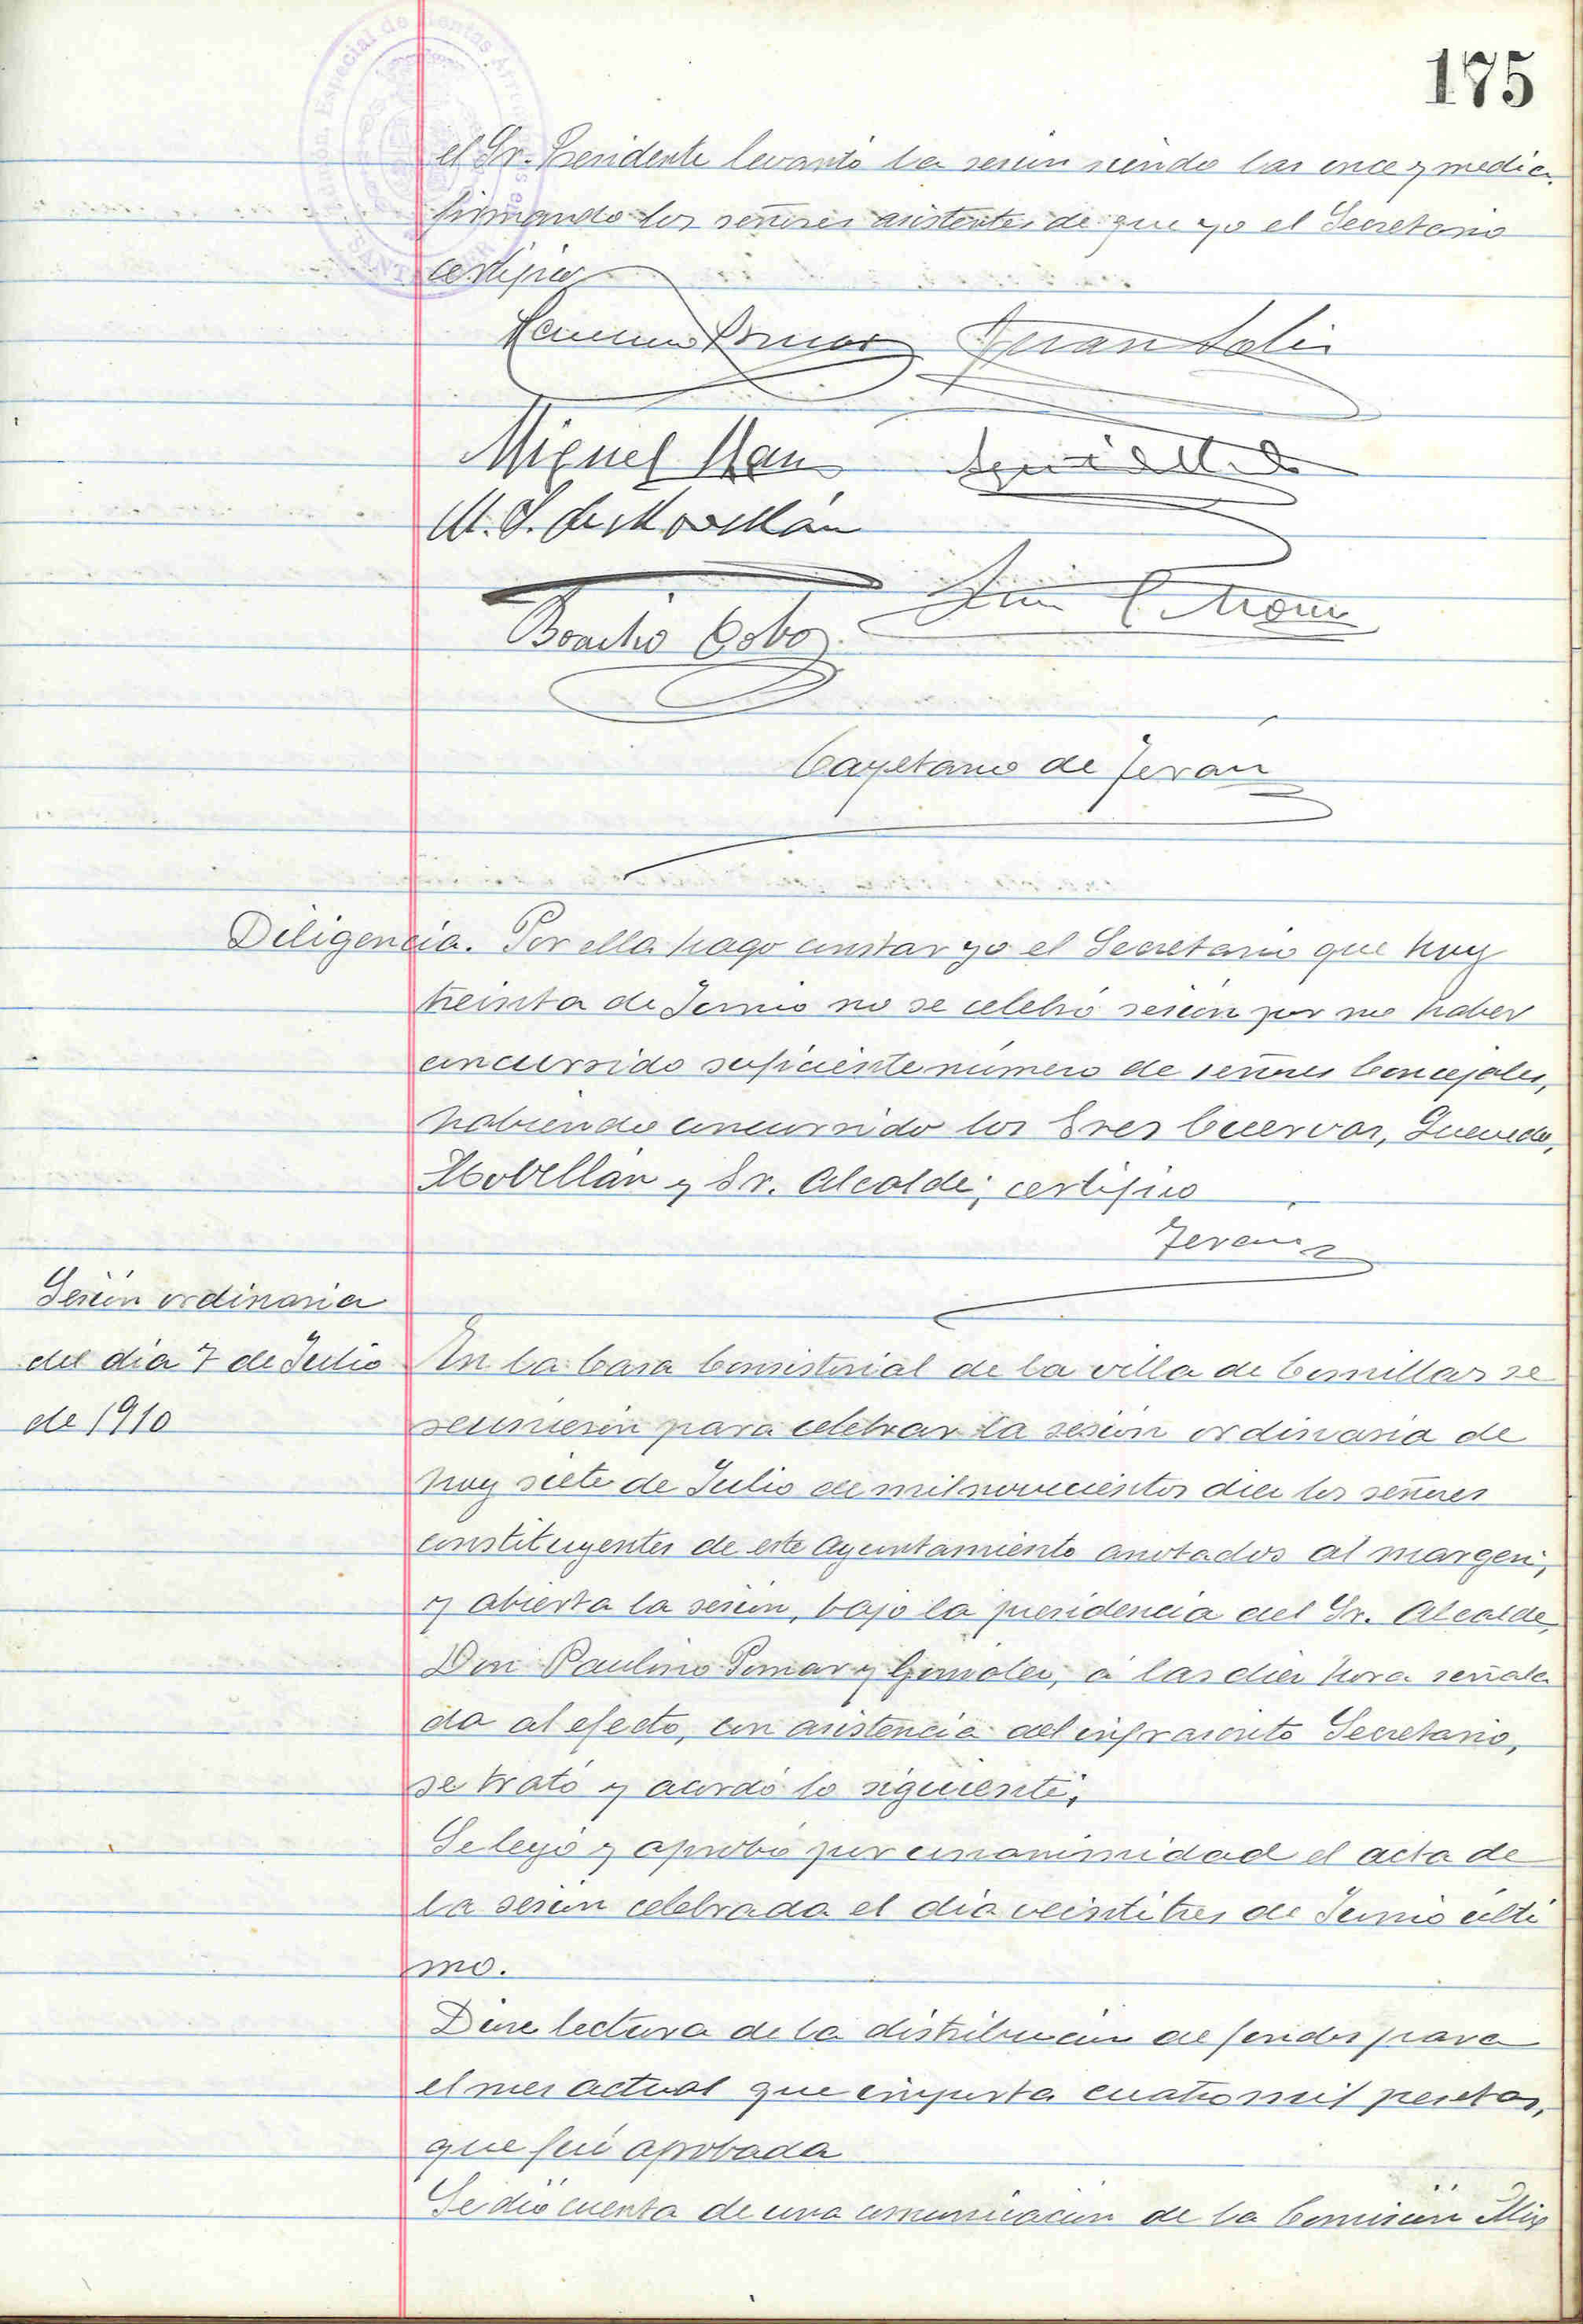 175
el Sr. Presidente levantó la sesión siendo las once y media,
firmando los señores asistentes de que yo el Secretario
certifico
Juan Solis
Miguel
M. S. de Movellán
Bonifacio Cobo
Cayetano de Terán
Diligencia. Por ella hago constar yo el Secretario que hoy
treinta de Junio no se celebró sesión por no haber
concurrido suficiente número de señores Concejales,
habiendo concurrido los Sres Cuervas, Quevedo,
Movellán y Sr. Alcalde; certifico
Terán
Sesión ordinaria
del día 7 de Julio
de 1910
En la Casa Consistorial de la villa de Comillas se
reunieron para celebrar la sesión ordinaria de
hoy siete de Julio de mil novecientos diez los señores
constituyentes de este Ayuntamiento anotados al margen;
y abierta la sesión, bajo la presidencia del Sr. Alcalde,
Don Paulino Pomar y González, á las diez hora señala
da al efecto, con asistencia del infrascrito Secretario,
se trató y acordó lo siguiente;
Se leyó y aprobó por unanimidad el acta de
la sesión celebrada el día veintitres de Junio últi
mo.
Diose lectura de la distribución de fondos para
el mes actual que importa cuatro mil pesetas,
que fué aprobada
Se dió cuenta de una comunicación de la Comisión Mix